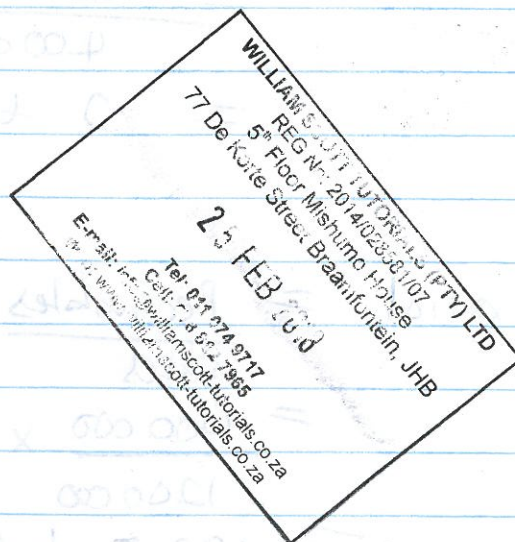 WILLIAM SCOTT TUTORIALS (PTY) LTD
REG No 2014/028581/07
5th Floor Mishumo House
77 De Korte Street Braamfontein, JHB
FEB
Tel: 011 074 9717
7965
E-mail: info@williamscott-tutorials.co.za
www.williamscott-tutorials.co.za